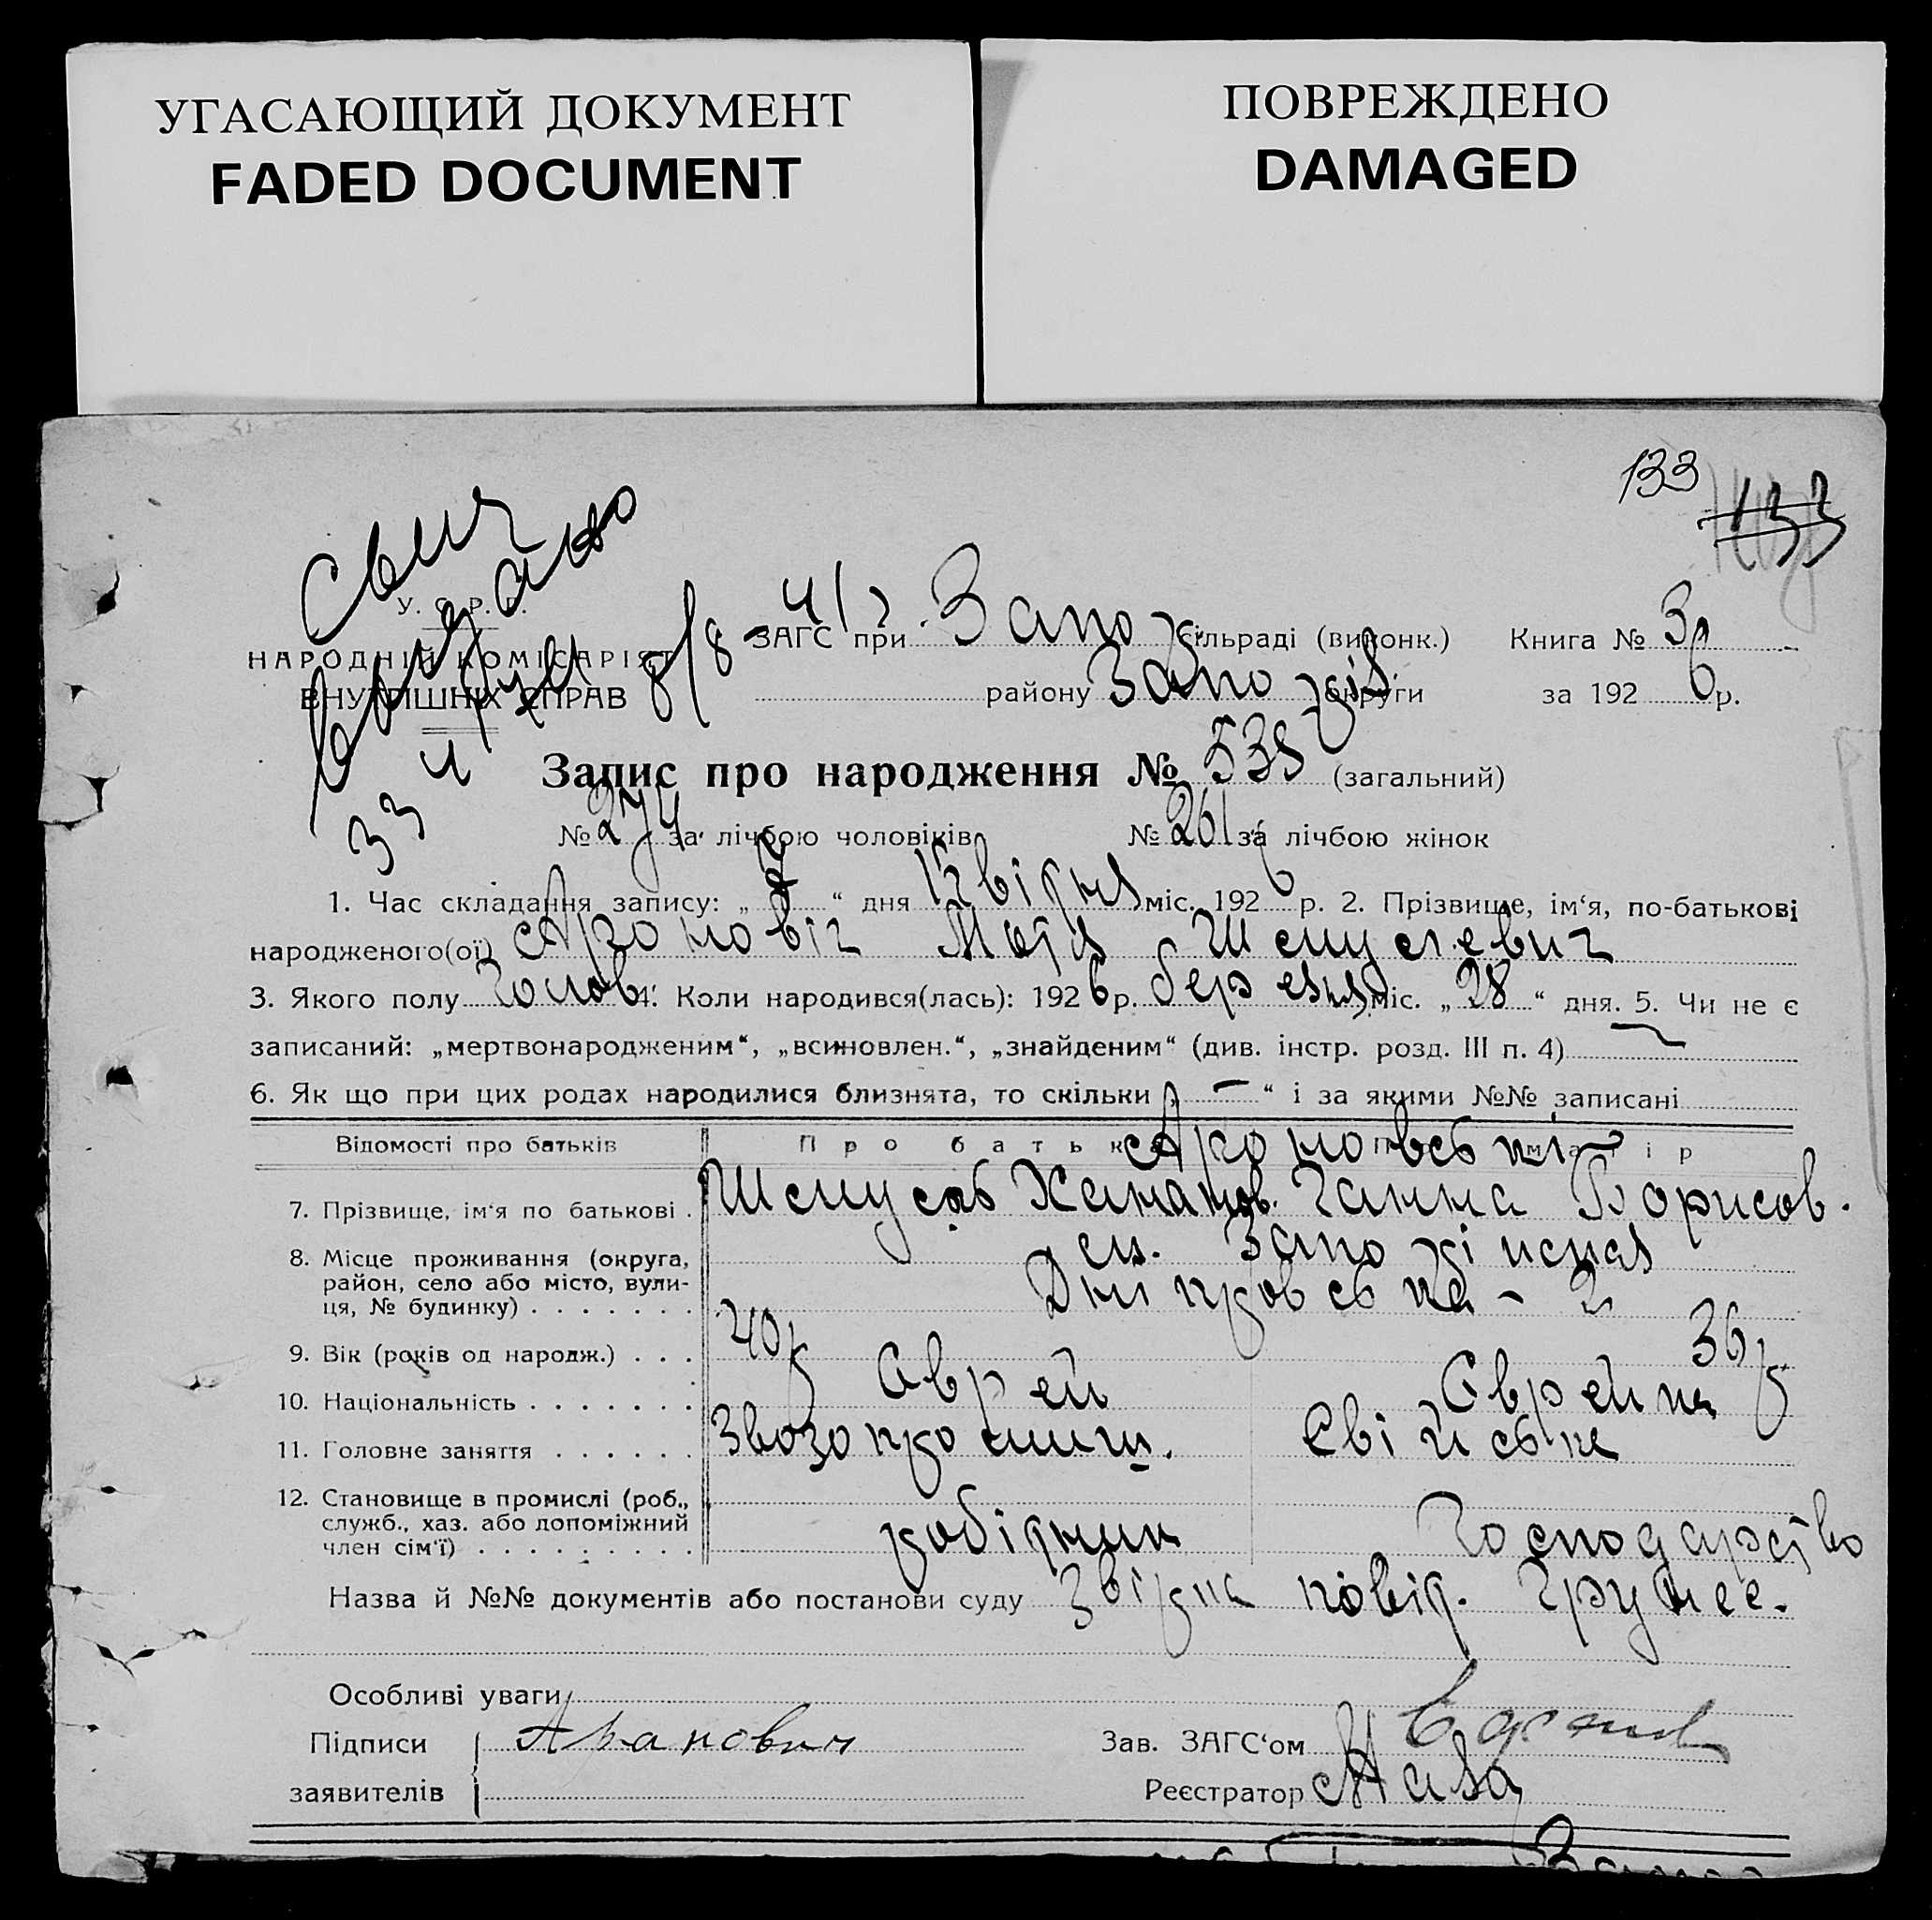 УГАСАЮЩИЙ ДОКУМЕНТ
FADED DOCUMENT
ПОВРЕЖДЕНО
DAMAGED
133
133
У. С. Р. Р.
НАРОДНІЙ КОМІСАРІЯТ
ВНУТРІШНІХ СПРАВ
ЗАГС при Запо сільраді (виконк.) Книга № 3
району Запоріз округи за 192 6 р.
Запис про народження № 535 (загальний)
№ 274 за лічбою чоловіків № 261 за лічбою жінок
1. Час складання запису: „ “ дня квітня міс. 192 6 р. 2. Прізвище, ім‘я, по-батькові
народженого(ої) Ароновіч Мотя Шмулевич
3. Якого полу чолов 4. Коли народився(лась): 192 6 р. березня міс. „ 28 “ дня. 5. Чи не є
записаний: „мертвонародженим“, „всиновлен.“, „знайденим“ (див. інстр. розд. III п. 4)
6. Як що при цих родах народилися близнята, то скільки „ — “ і за якими №№ записані
Відомості про батьків Про батька Про матір
7. Прізвище, ім‘я по батькові . Ганна Борисов.
8. Місце проживання (округа,
район, село або місто, вули-
ця, № будинку) . . . . . . . Дніпровська - 2
9. Вік (років од народж.) . . . 40 р 36 р
10. Національність . . . . . . . Єврей Єврейка
11. Головне заняття . . . . . .
12. Становище в промислі (роб.,
служб., хаз. або допоміжний
член сім‘ї) . . . . . . . . . робітник Господарство
Назва й №№ документів або постанови суду повід.
Особливі уваги
Підписи Аранович Зав. ЗАГС‘ом
заявителів Реєстратор